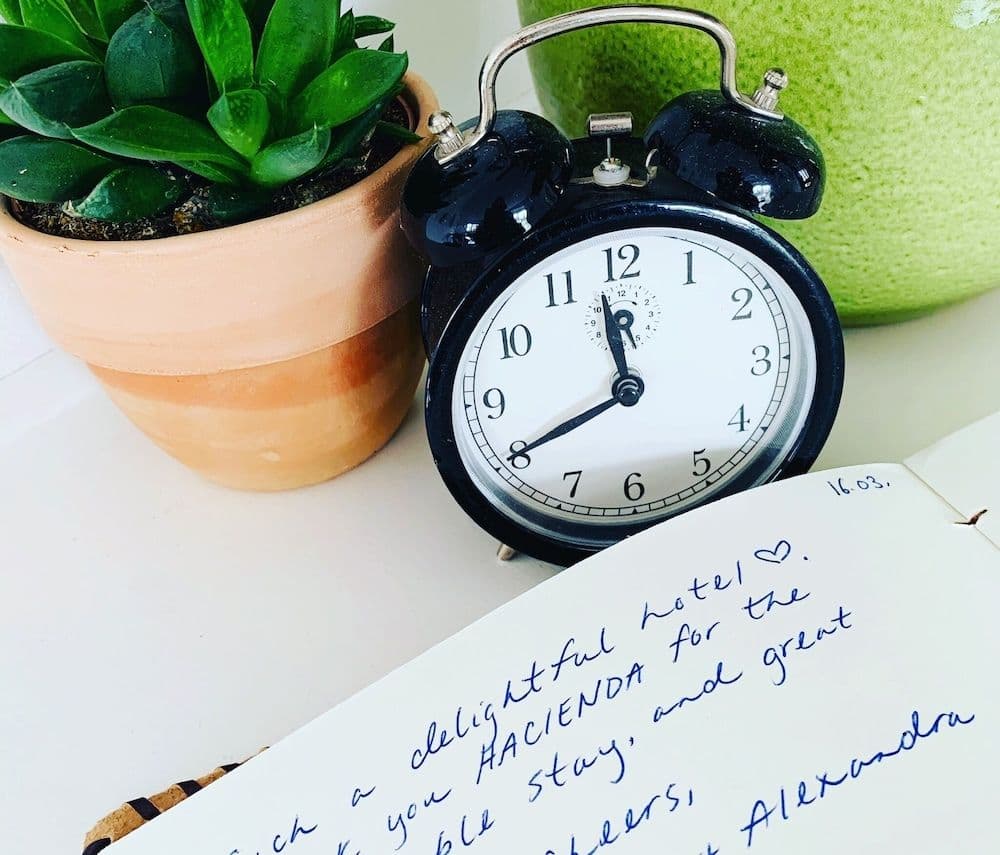 12
1
2
3
4
5
6
7
8
9
10
11
16.03.
a delightful hotel ♡.
you HACIENDA for the
stay, and great
Alexandra